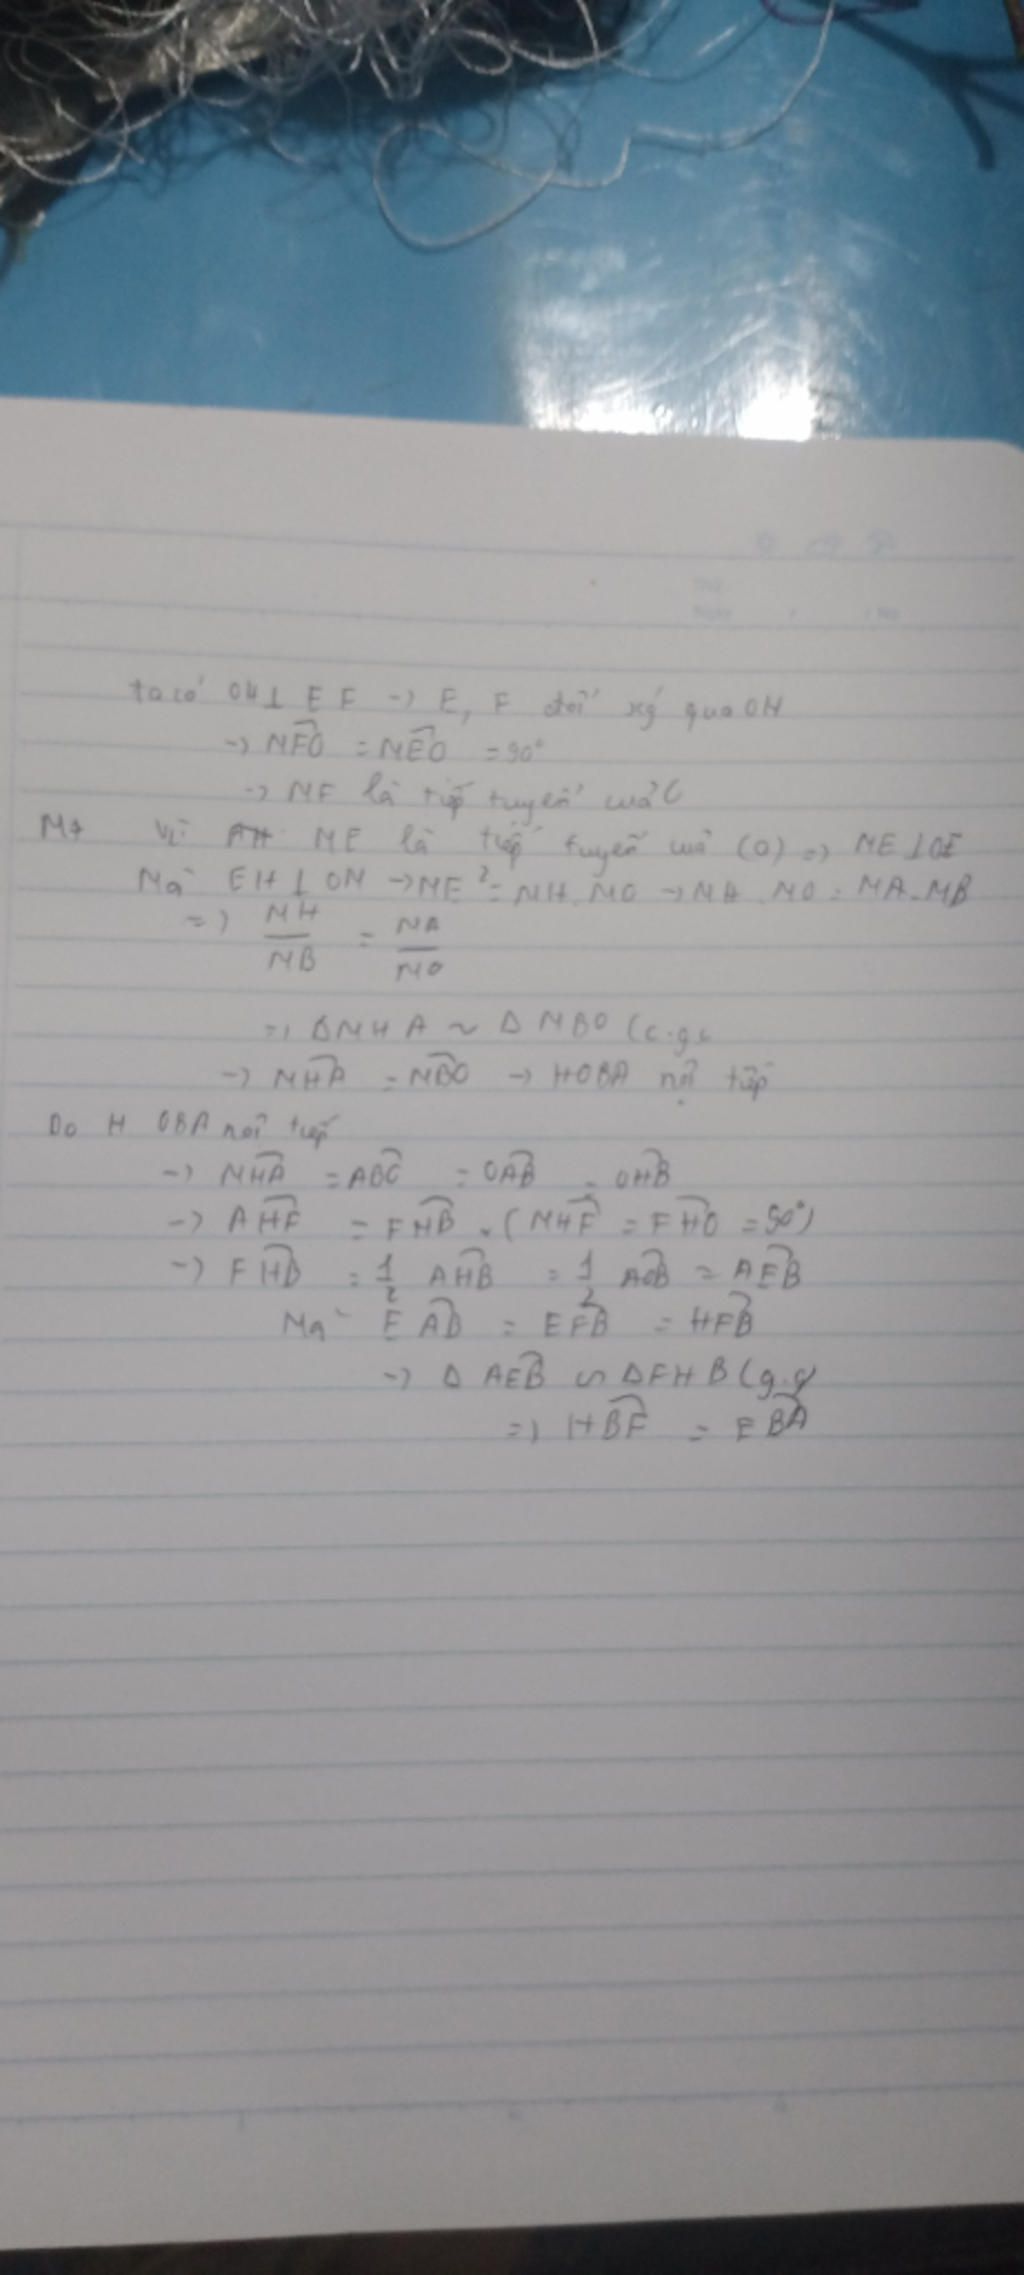 ta có OH⊥EF -> E, F đối xứ qua OH
-> MFO = MEO = 90°
-> MF là tiếp tuyến của O
M+ Vì ME là tiếp tuyến của (O) => ME⊥OE
Mà EH⊥OM -> ME² = MH.MO -> MH.MO = MA.MB
=> MH/MB = MA/MO
=> ΔMHA ~ ΔMBO (c.g.c
-> MHA = MBO -> HOBA nội tiếp
Do HOBA nội tiếp
-> MHA = ABO = OAB = OHB
-> AHF = FHB. (MHF = FHO = 90°)
-> FHB = 1/2 AHB = 1/2 AOB = AEB
Mà EAB = EFB = HFB
-> ΔAEB ∽ ΔFHB (g.g)
=> HBF = EBA